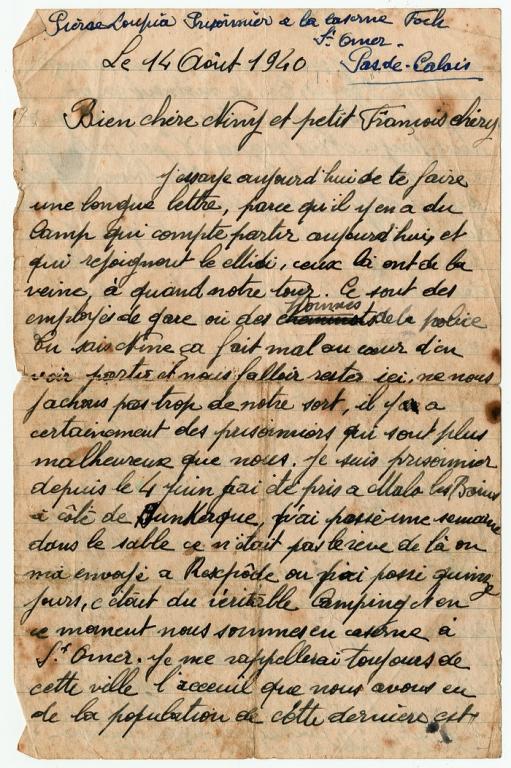 Pierre Loupia Prisonnier a la caserne Foch
St Omer.
Pas de-Calais
Le 14 Août 1940
Bien chère Niny et petit François chéry
j'essaye aujourd'hui de te faire
une longue lettre, parce qu'il y en a du
Camp qui compte partir aujourd'hui, et
qui rejoignent le Midi, ceux là ont de la
veine, à quand notre tour. Ce sont des
employés de gare ou des hommes de la police
Tu sais Nine ça fait mal au cœur d'en
voir partir et nous falloir rester ici, ne nous
fachons pas trop de notre sort, il y a
certainement des prisonniers qui sont plus
malheureux que nous. je suis prisonnier
depuis le 4 juin j'ai été pris a Malo les Bains
à côté de Dunkerque, j'ai passé une semaine
dans le sable ce n'était pas le reve de là on
ma envoyé a Rexpôde ou j'ai passé quinze
jours, c'était du véritable Camping et en
ce moment nous sommes en caserne à
St Omer. je me rappellerai toujours de
cette ville l'acceuil que nous avons eu
de la population de cette dernière est